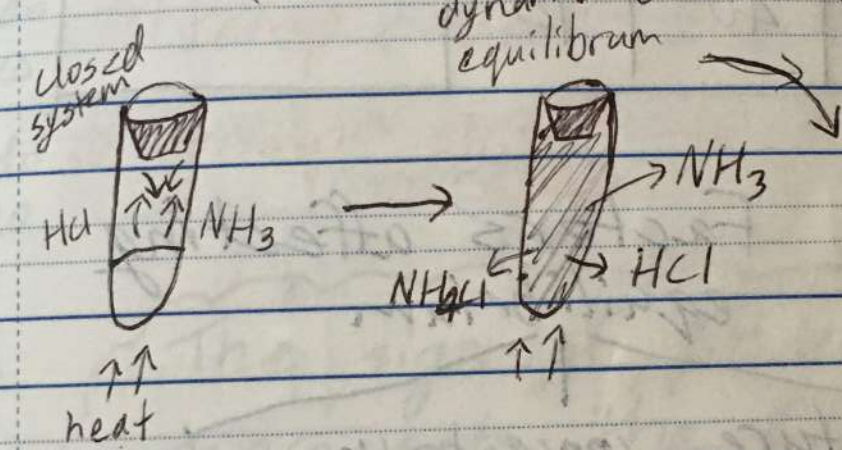 closed
system
HCl NH3
heat
equilibram
NH3
HCl
NH4Cl